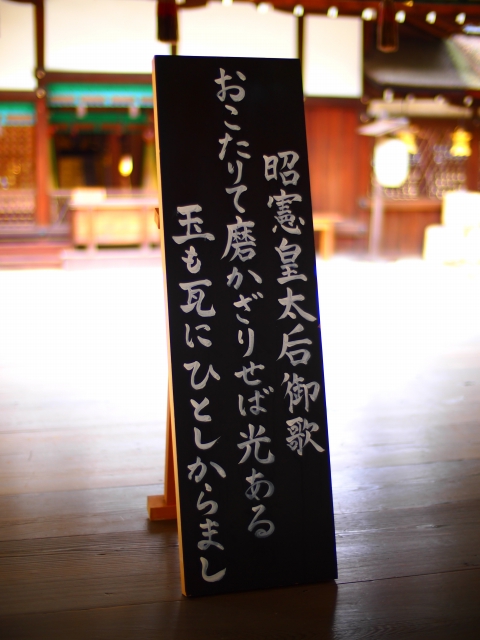 昭憲皇太后御歌
おこたりて磨かざりせば光ある
玉も瓦にひとしからまし